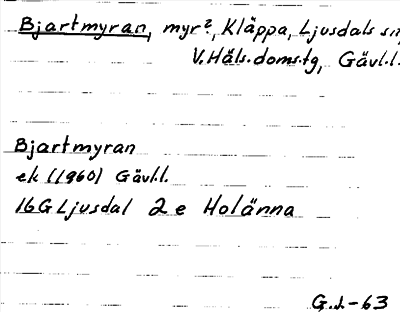 Bjartmyran, myr?, Kläppa, Ljusdals sn,
V. Häls. doms.tg, Gävl.l.
Bjartmyran
ek (1960) Gävl.l.
16G Ljusdal 2 e Holänna
G.J.-63